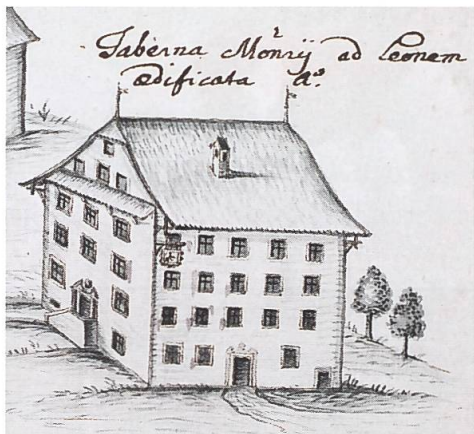 Taberna Monrij ad Leonem
ædificata Aº.